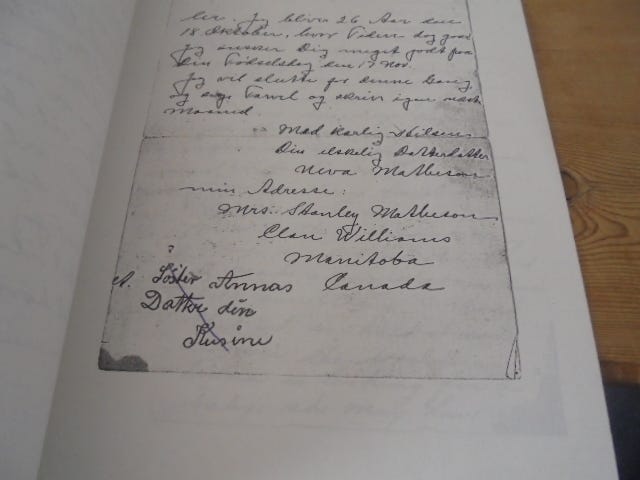 ler. Jeg bliver 26 Aar den
18 Oktober, hvor Tiden dog gaar
Jeg ønsker Dig meget godt paa
Din Fødselsdag den 17 Nov.
Jeg vil slutte for denne Gang,
og sige Farvel og skriv igen næste
Maaned.
Med kærlig Hilsen
Din elskelig Datterdatter
Neva Matheson
min Adresse:
Mrs. Stanley Matheson
Clan Williams
Manitoba
Canada
?
Søster Annas
Datter din
Kusine